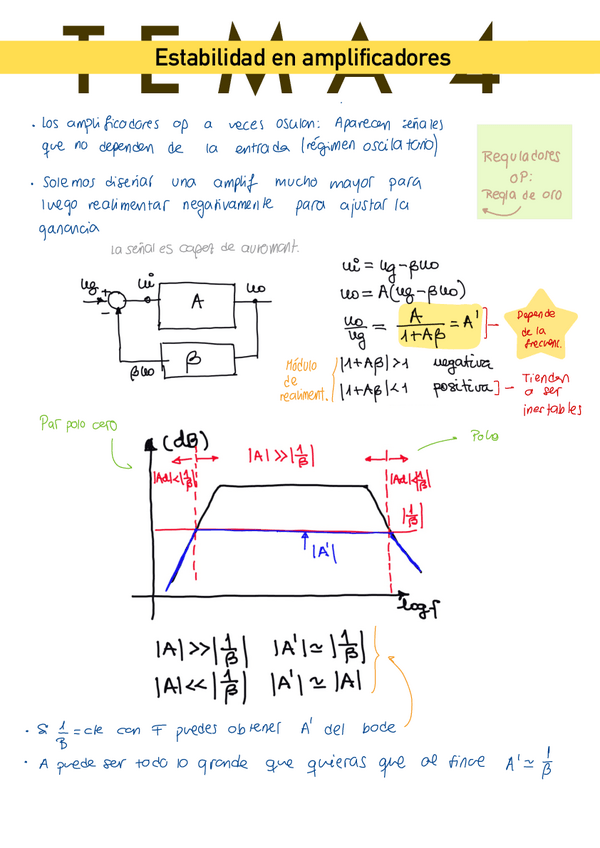 TEMA 4
Estabilidad en amplificadores
. Los amplificadores op a veces oscilan: Aparecen señales
que no dependen de la entrada (régimen oscilatorio)
Reguladores
OP:
Regla de oro
. Solemos diseñar una amplif mucho mayor para
luego realimentar negativamente para ajustar la
ganancia
La señal es capaz de automant.
ug + - ui A uo
βuo β
ui = ug - βuo
uo = A(ug - βuo)
uo/ug = A/(1+Aβ) = A'
Depende
de la
frecuenc.
Módulo
de
realiment.
|1+Aβ|>1 negativa
|1+Aβ|<1 positiva
Tienden
a ser
inestables
Par polo cero
(dB)
|A| >> |1/β|
Polo
|Ad|<|1/β|
|Ad|<|1/β|
|1/β|
|A'|
log f
|A|>>|1/β| |A'|≃|1/β|
|A|<<|1/β| |A'|≃|A|
. Si 1/β = cte con F puedes obtener A' del bode
. A puede ser todo lo grande que quieras que al final A' ≃ 1/β